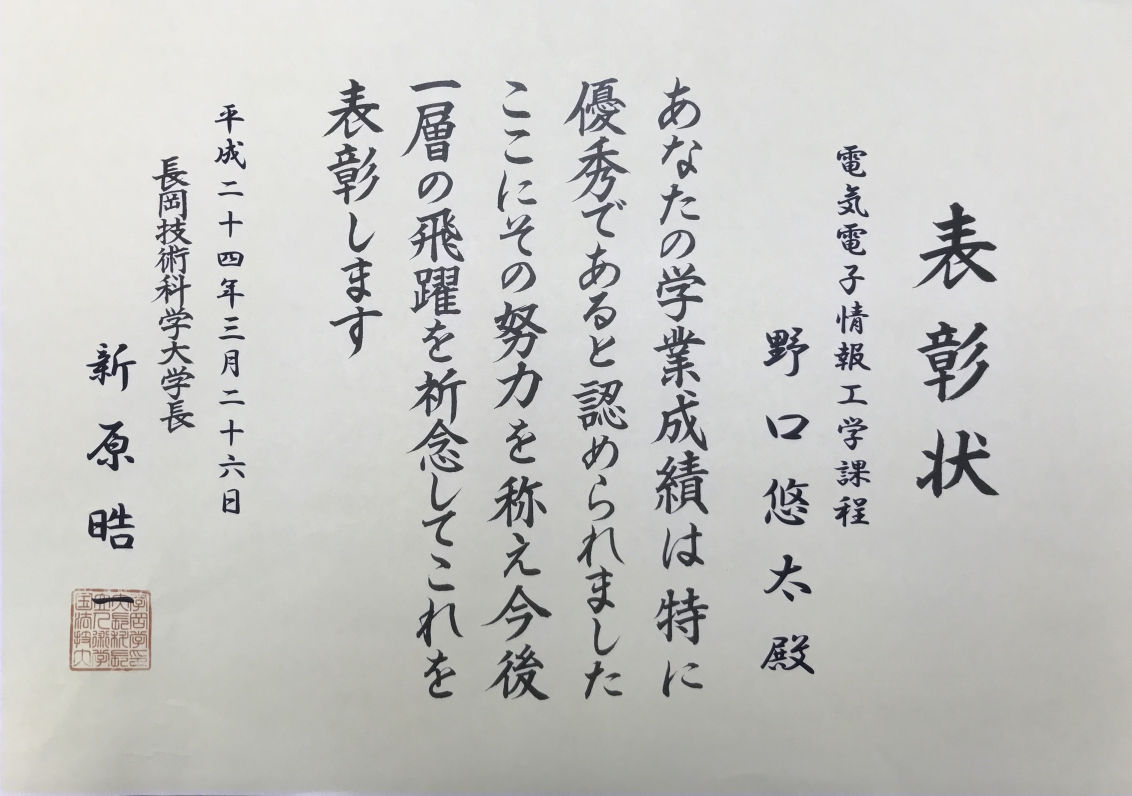 表彰状
電気電子情報工学課程
野口悠太殿
あなたの学業成績は特に
優秀であると認められました
ここにその努力を称え今後
一層の飛躍を祈念してこれを
表彰します
平成二十四年三月二十六日
長岡技術科学大学長
新原晧一